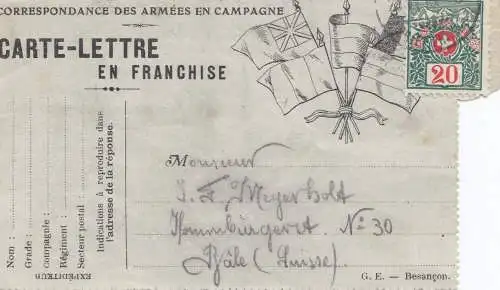 CORRESPONDANCE DES ARMÉES EN CAMPAGNE
CARTE-LETTRE
EN FRANCHISE
20
Indications à reproduire dans
l'adresse de la réponse.
Nom :
Grade :
Compagnie :
Régiment :
Secteur postal :
EXPÉDITEUR
Monsieur
J. F. Meyer
No 30
Bâle (Suisse)
G. E. — Besançon.